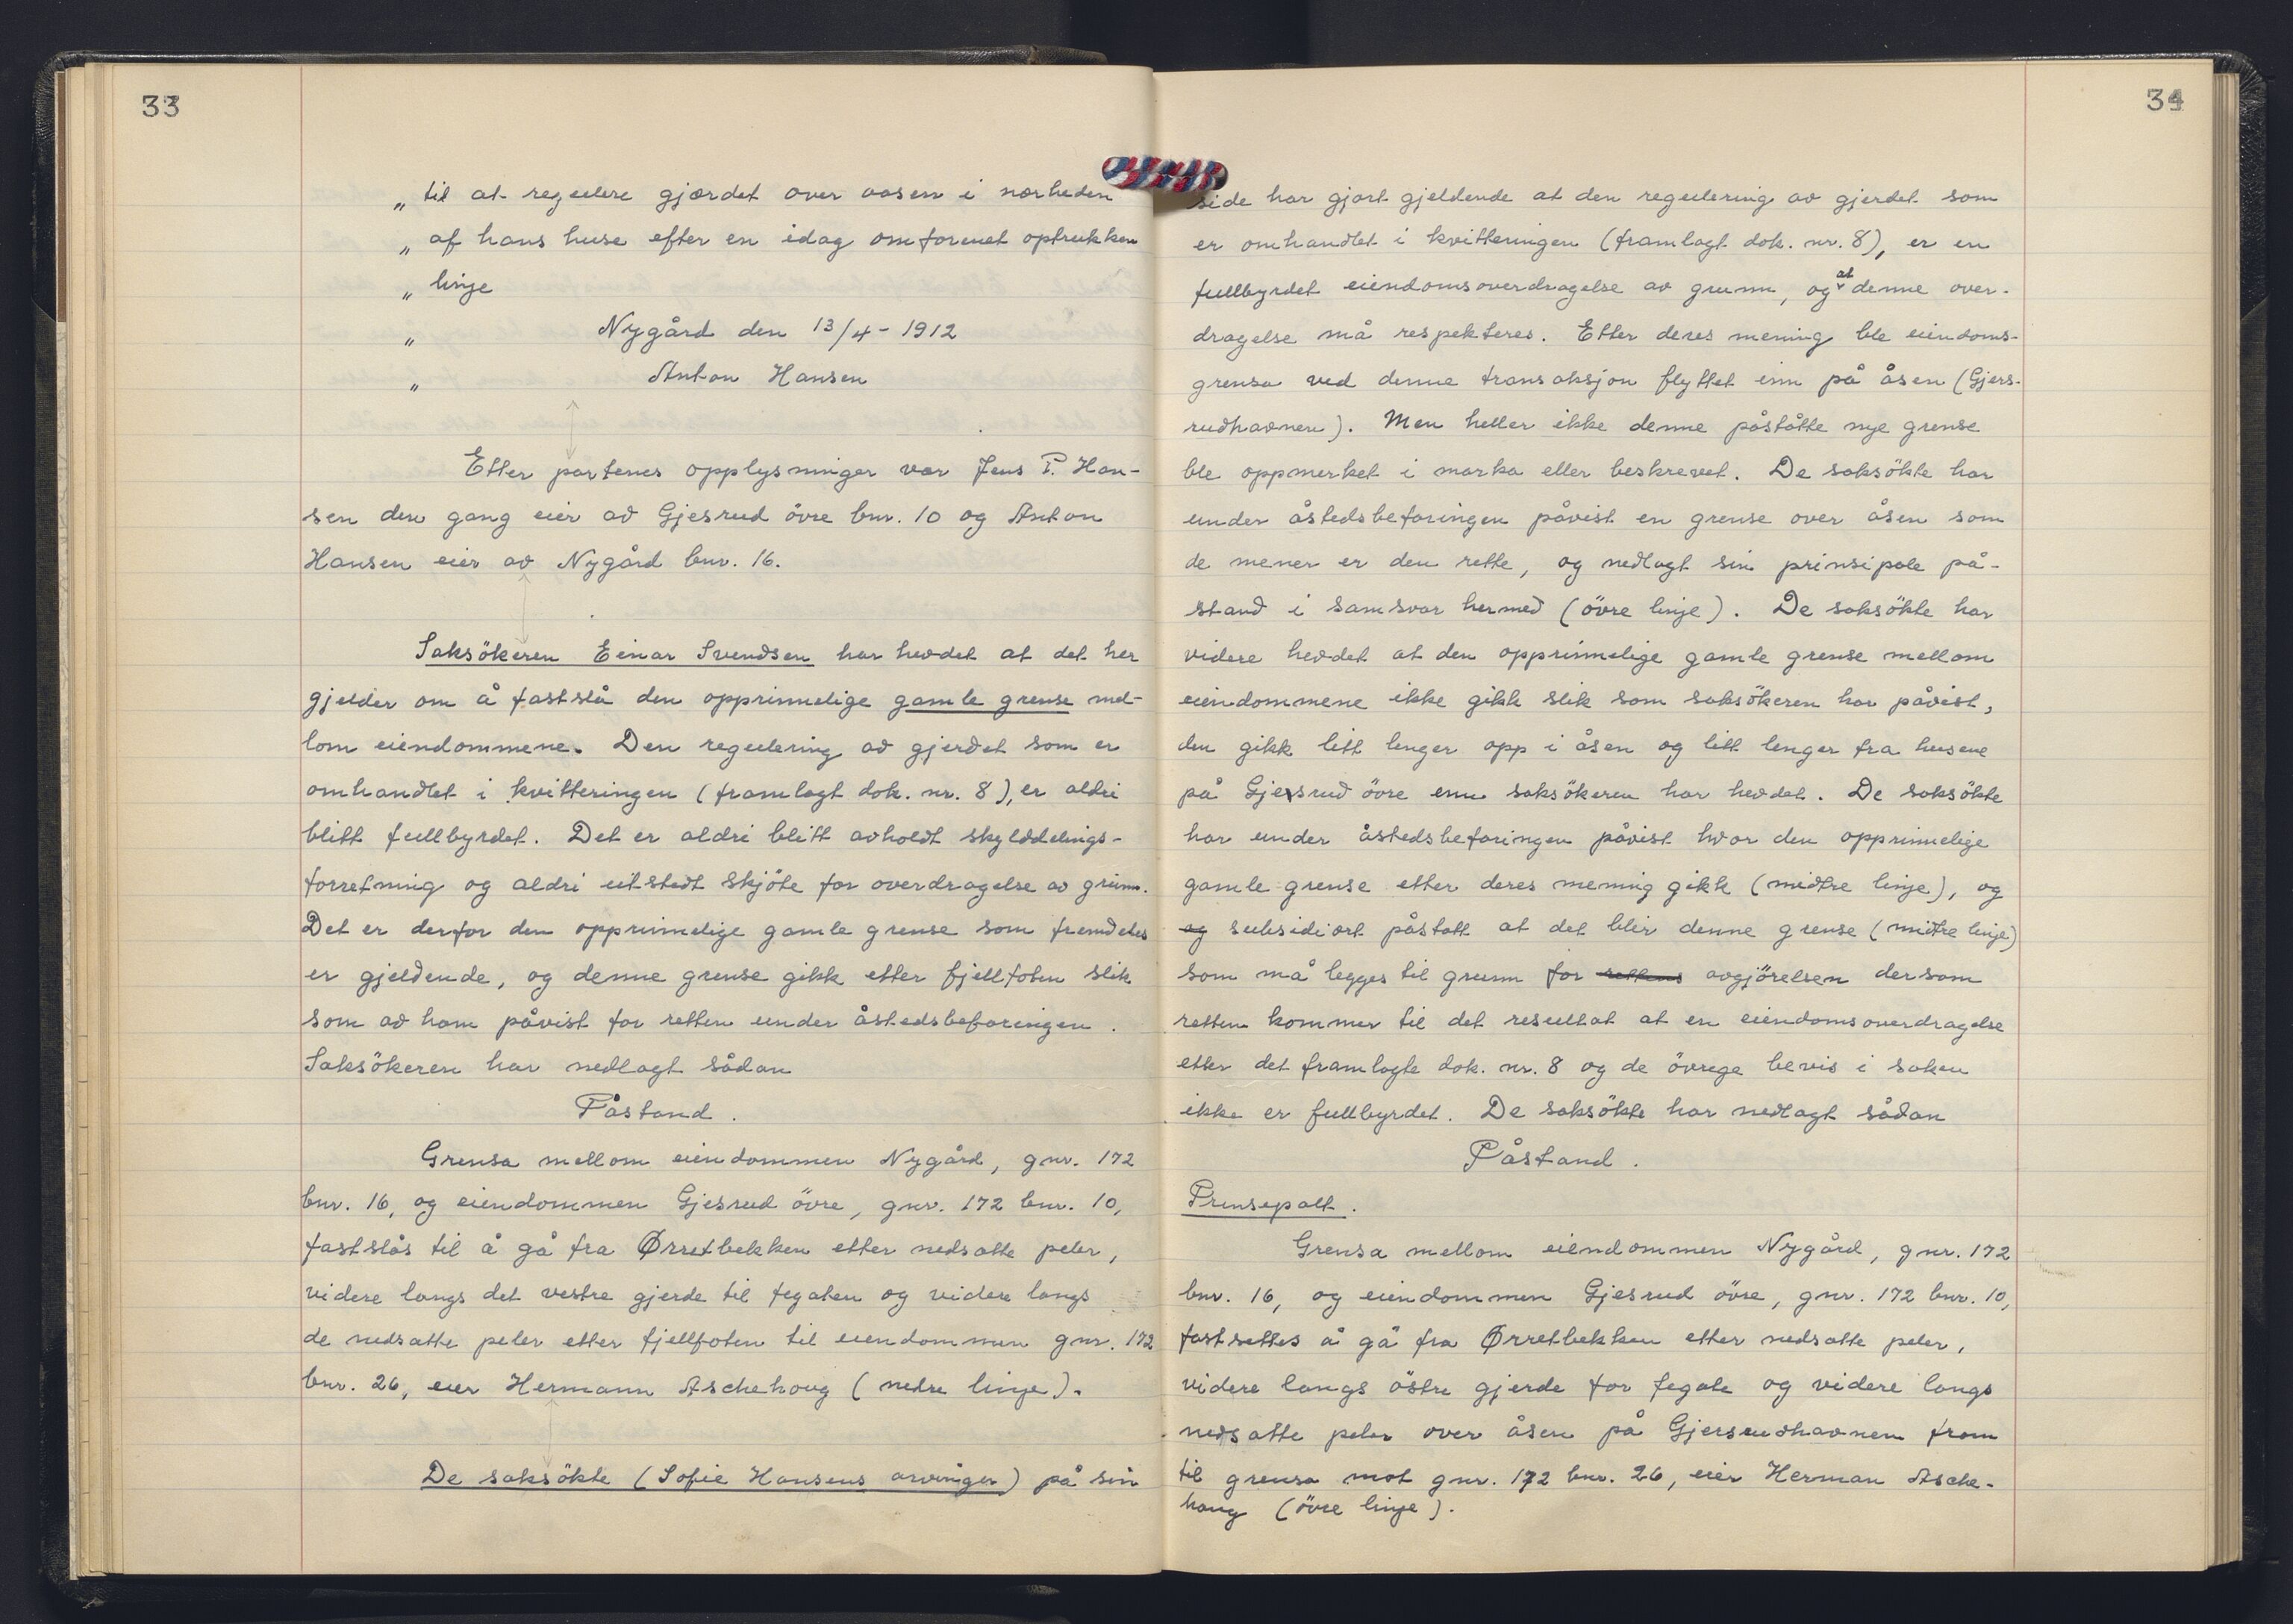 33
„ til at regulere gjærdet over aasen i nærheden
„ af hans huse efter en idag omforenet optrukken
„ linje
„ Nygård den 13/4 - 1912
„ Anton Hansen
Etter partenes opplysninger var Jens P. Han-
sen den gang eier av Gjesrud övre bnr. 10 og Anton
Hansen eier av Nygård bnr. 16.
Saksökeren Einar Svendsen har hevdet at det her
gjelder om å fastslå den opprinnelige gamle grense mel-
lom eiendommene. Den regulering av gjerdet som er
omhandlet i kvitteringen (framlagt dok. nr. 8), er aldri
blitt fullbyrdet. Det er aldri blitt avholdt skylddelings-
forretning og aldri utstedt skjöte for overdragelse av grunn.
Det er derfor den opprinnelige gamle grense som fremdeles
er gjeldende, og denne grense gikk etter fjellfoten slik
som av ham påvist for retten under åstedsbefaringen.
Saksökeren har nedlagt sådan
Påstand.
Grensa mellom eiendommen Nygård, gnr. 172
bnr. 16, og eiendommen Gjesrud övre, gnr. 172 bnr. 10,
fastslås til å gå fra Ørretbekken etter nedsatte peler,
videre langs det vestre gjerde til fegaten og videre langs
de nedsatte peler etter fjellfoten til eiendommen gnr. 172
bnr. 26, eier Hermann Aschehoug (nedre linje).
De saksökte (Sofie Hansens arvinger) på sin
34
side har gjort gjeldende at den regulering av gjerdet som
er omhandlet i kvitteringen (framlagt dok. nr. 8), er en
fullbyrdet eiendomsoverdragelse av grunn, og at denne over-
dragelse må respekteres. Etter deres mening ble eiendoms-
grensa ved denne transaksjon flyttet inn på åsen (Gjers-
rudhavnen). Men heller ikke denne påståtte nye grense
ble oppmerket i marka eller beskrevet. De saksökte har
under åstedsbefaringen påvist en grense over åsen som
de mener er den rette, og nedlagt sin prinsipale på-
stand i samsvar hermed (övre linje). De saksökte har
videre hevdet at den opprinnelige gamle grense mellom
eiendommene ikke gikk slik som saksökeren har påvist,
den gikk litt lenger opp i åsen og litt lenger fra husene
på Gjersrud övre enn saksökeren har hevdet. De saksökte
har under åstedsbefaringen påvist hvor den opprinnelige
gamle grense etter deres mening gikk (midtre linje), og
og subsidiært påstått at det blir denne grense (midtre linje)
som må legges til grunn for rettens avgjörelsen dersom
retten kommer til det resultat at en eiendomsoverdragelse
etter det framlagte dok. nr. 8 og de övrige bevis i saken
ikke er fullbyrdet. De saksökte har nedlagt sådan
Påstand.
Prinsepalt.
Grensa mellom eiendommen Nygård, gnr. 172
bnr. 16, og eiendommen Gjesrud övre, gnr. 172 bnr. 10,
fastsettes å gå fra Ørretbekken etter nedsatte peler,
videre langs östre gjerde for fegate og videre langs
nedsatte peler over åsen på Gjersrudhavnen fram
til grensa mot gnr. 172 bnr. 26, eier Herman Asche-
houg (övre linje).